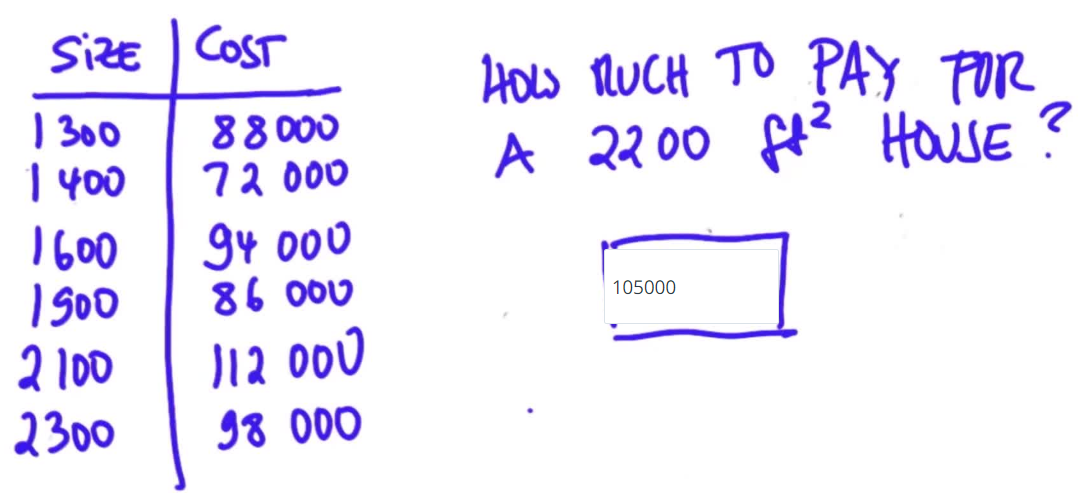 SIZE COST
1300 88000
1400 72 000
1600 94 000
1900 86 000
2100 112 000
2300 98 000
HOW MUCH TO PAY FOR
A 2200 ft² HOUSE ?
105000